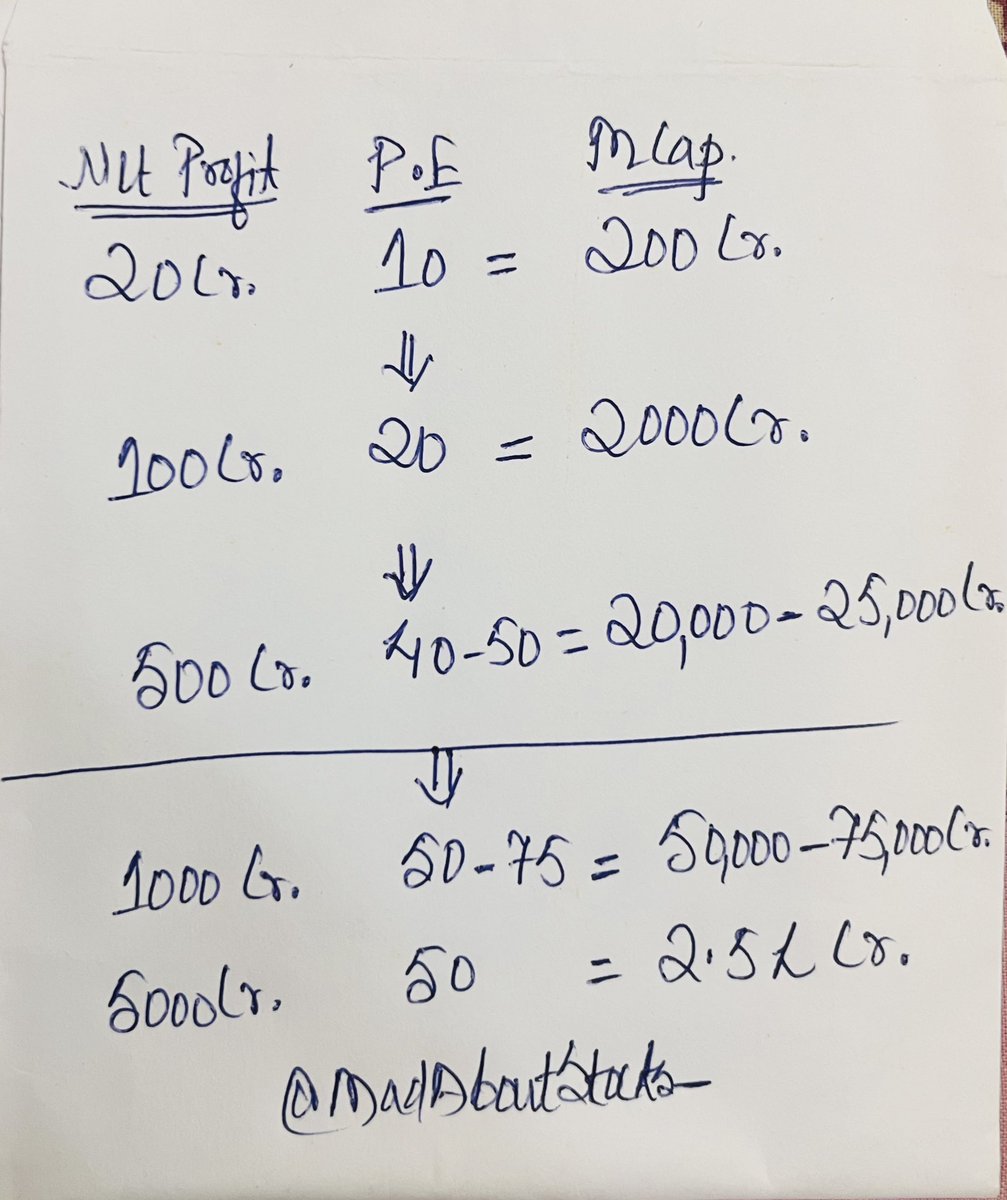 Net Profit P.E MCap.
20 Cr. 10 = 200 Cr.
⇓
100 Cr. 20 = 2000 Cr.
⇓
500 Cr. 40-50 = 20,000 - 25,000 Cr.
⇓
1000 Cr. 50-75 = 50,000 - 75,000 Cr.
5000 Cr. 50 = 2.5 L Cr.
@MadAboutStocks